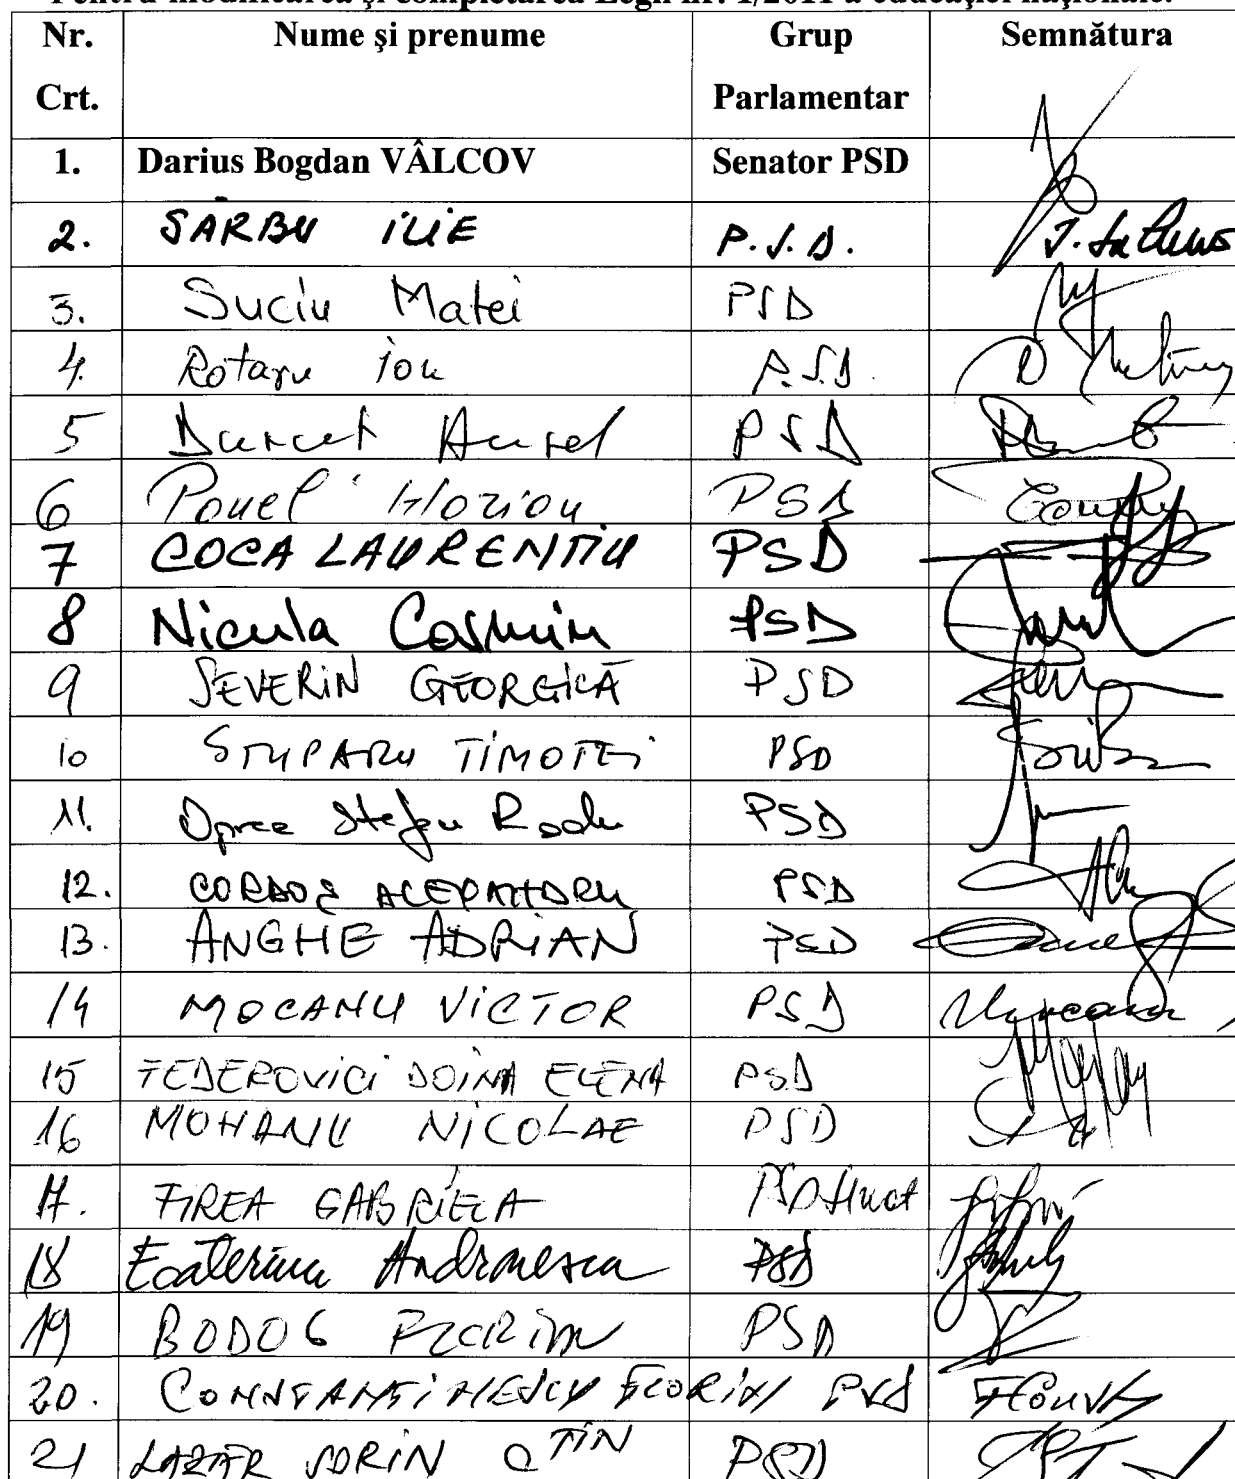 Pentru modificarea şi completarea Legii nr. 1/2011 a educaţiei naţionale.
Nr. Crt. Nume şi prenume Grup Parlamentar Semnătura
1. Darius Bogdan VÂLCOV Senator PSD
2. SÂRBU ILIE P.S.D.
3. Suciu Matei PSD
4. Rotaru Ion P.S.D.
5 Durcut Aurel PSD
6 Pavel Horiou PSD
7 COCA LAURENTIU PSD
8 Nicula Cosmin PSD
9 SEVERIN GEORGICĂ PSD
10 STUPARU TIMOTEI PSD
11. Oprea Stefan Radu PSD
12. CORDOŞ ALEXANDRU PSD
13. ANGHEL ADRIAN PSD
14 MOCANU VICTOR PSD
15 FEDEROVICI DOINA ELENA PSD
16 MOHANU NICOLAE PSD
17. FIREA GABRIELA PSD
18 Ecaterina Andronescu PSD
19 BODOG FLORIN PSD
20. CONSTANTINESCU FLORIN PSD
21 LAZĂR SORIN CTIN PSD